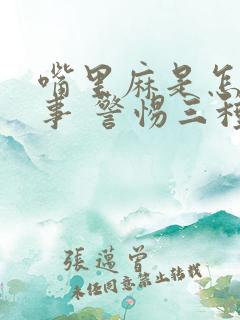 嘴里麻是怎
事 警惕三种
張邁曾
未经同意禁止转载